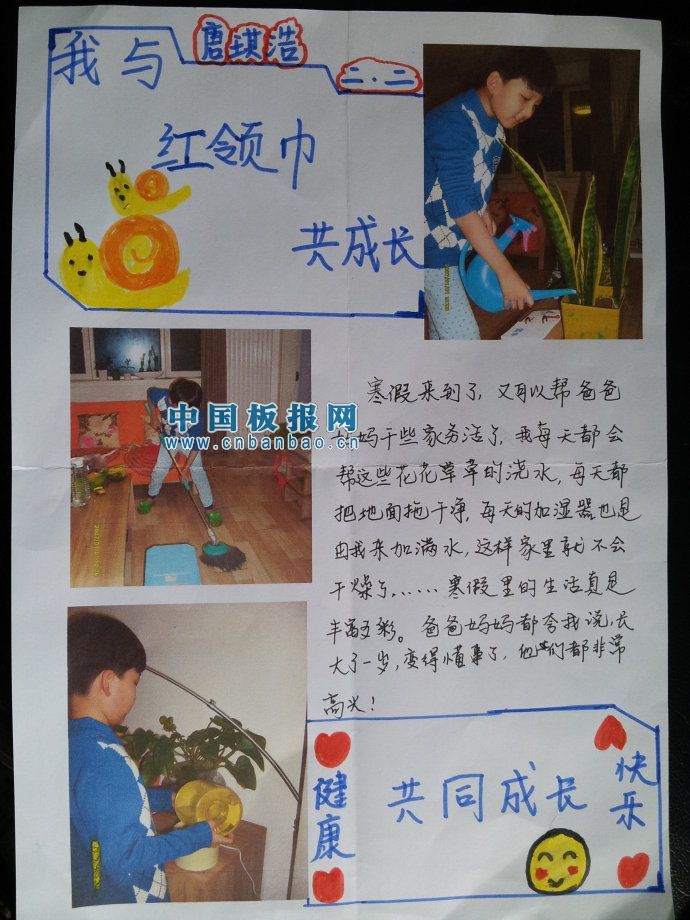 我与
唐琪浩
二.二
红领巾
共成长
中国板报网
www.cnbanbao.cn
寒假来到了，又可以帮爸爸
妈干些家务活了，我每天都会
帮这些花花草草的浇水，每天都
把地面拖干净，每天的加湿器也是
由我来加满水，这样家里就不会
干燥了，……寒假里的生活真是
丰富多彩。爸爸妈妈都夸我说，长
大了一岁，变得懂事了，他们都非常
高兴！
健康
共同成长
快乐